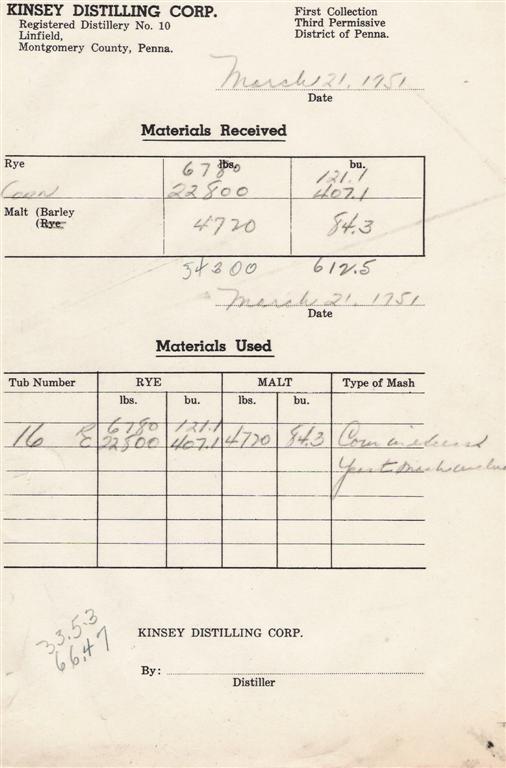 KINSEY DISTILLING CORP.
Registered Distillery No. 10
Linfield,
Montgomery County, Penna.
First Collection
Third Permissive
District of Penna.
March 21, 1951
Date
Materials Received
lbs. bu.
Rye 6780 121.1
Corn 22800 407.1
Malt (Barley
(Rye 4720 84.3
34300 612.5
March 21, 1951
Date
Materials Used
Tub Number RYE MALT Type of Mash
lbs. bu. lbs. bu.
R 6780 121.1
16 C 22800 407.1 4720 84.3 Corn
Yeast Mash
33.53
66.47
KINSEY DISTILLING CORP.
By:
Distiller